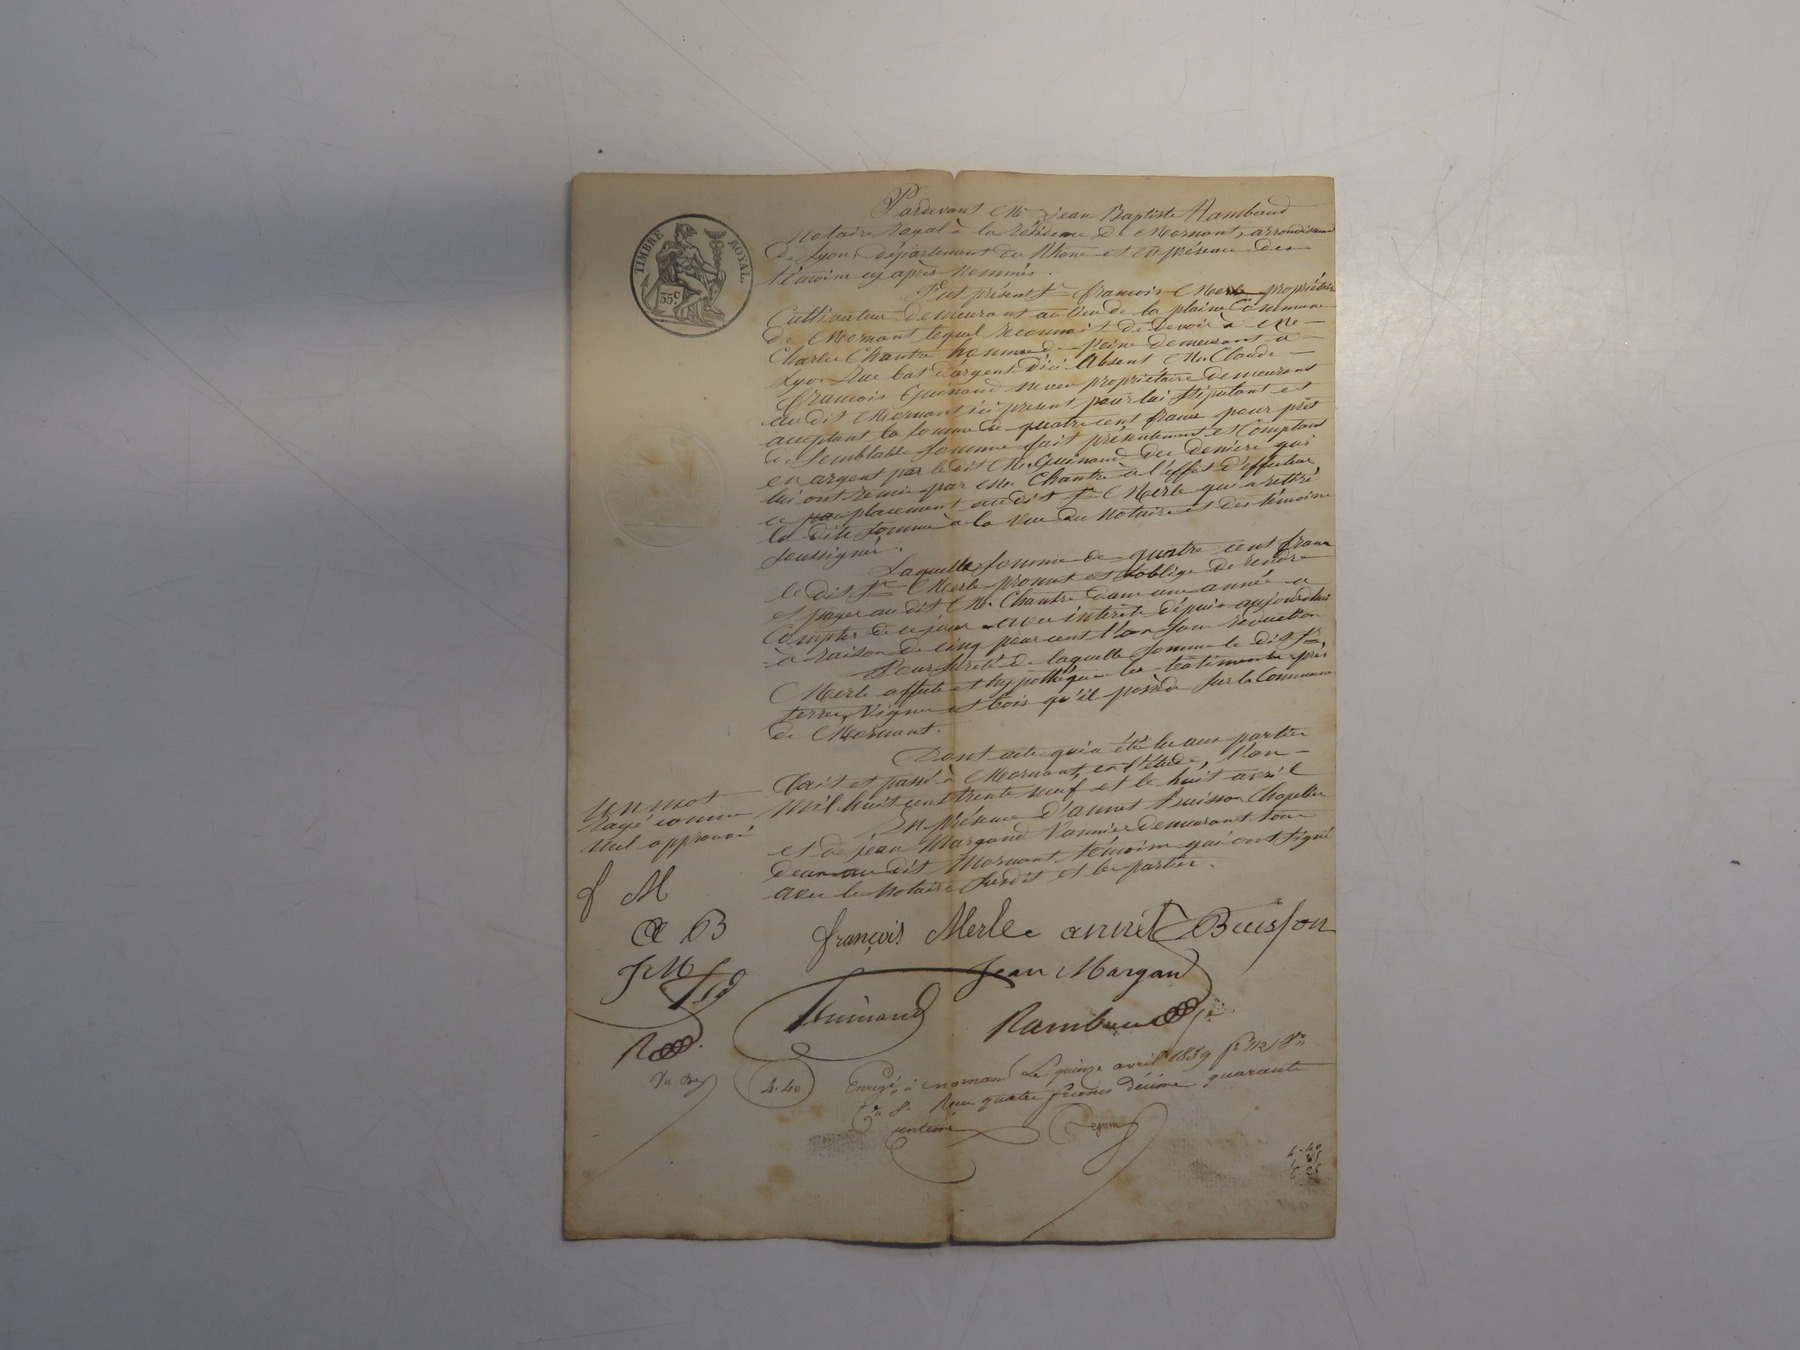 TIMBRE ROYAL
35c
Pardevant Me Jean Baptiste Rambaud
Notaire Royal à la résidence de Mornant, arrondissement
de Lyon département du Rhône et en présence des
témoins cy après nommés.
Fut présent Sr françois Merle propriétaire
Cultivateur demeurant au lieu de la plaine Commune
de Mornant lequel reconnait de devoir à Mr
Charles Chantre homme de peine demeurant à
Lyon Rue bas d'argent D'ici Absent Mr. Claude
françois Guinand neveu propriétaire demeurant
au dit Mornant ici present pour lui stipulant et
acceptant la somme de quatre cent francs pour prêt
de Semblable Somme fait présentement et Comptant
en argent par le dit Mr. Guinand des deniers qui
lui ont remis par Mr. Chantre à l'effet d'effectuer
ce placement au dit Sr Merle qui a retiré
la dite somme à la vue du Notaire et des témoins
soussignés.
Laquelle somme de quatre cent francs
le dit Sr Merle promet et s'oblige de rendre
et payer au dit Mr. Chantre dans une année a
Compter de ce jour avec intérêts depuis aujourd'hui
à raison de cinq pour cent l'an sans retenue
Pour sureté de laquelle somme le dit Sr
Merle affecte et hypothèque les bâtiments prés
terres, Vignes et bois qu'il possède sur la Commune
de Mornant.
Dont acte qui a été lu aux parties
fait et passé à Mornant, en l'étude, l'an
Mil huit cent trente neuf et le huit avril
En présence d'annet Buisson Chapelier
et de jean Margand Vannier demeurant tous
deux au dit Mornant témoins qui ont signé
avec le Notaire susdit et les parties.
Un mot
Rayé comme
Nul approuvé
f M
a B
J M
françois Merle annet Buisson
Jean Margand
Guinand
Rambaud
4.40
Enregé à mornant Le quinze avril 1839 fo 112 Vo
Cn 8. Reçu quatre francs décime quarante
centimes
4.40
1.85
6.25